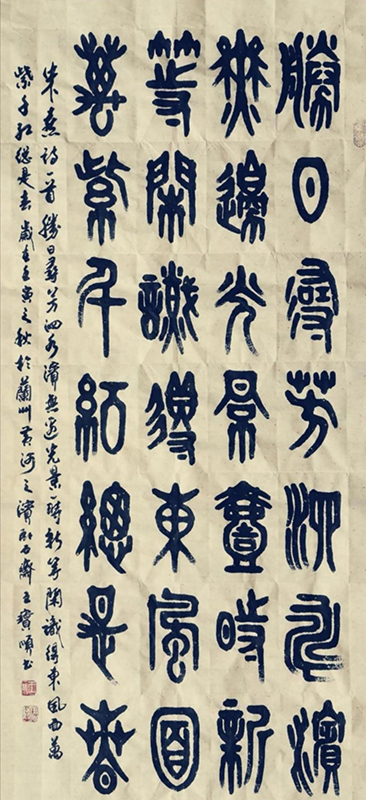 勝日尋芳泗水濱
無邊光景壹時新
等閑識得東風面
萬紫千紅總是春
朱熹詩一首勝日尋芳泗水濱無邊光景一時新等閑識得東風面萬
紫千紅總是春歲在壬寅之秋於蘭州黃河之濱卧石齋王寶順書